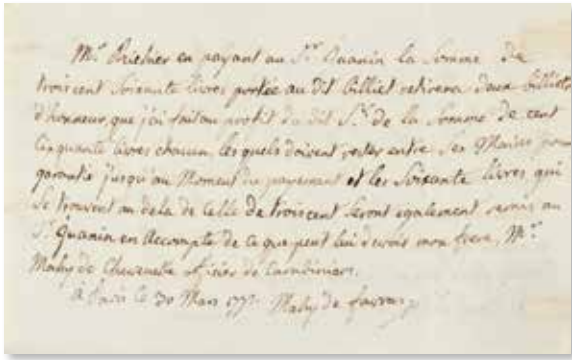 Mr. Richier en payant au Sr. Quanin la somme de
troiscent soixante livres portée au dit billiet retirera deux billiets
d'honneur que j'ai fait au profit du dit Sr. de la somme de cent
cinquante livres chacun, lesquels doivent rester entre ses mains pour
garantie jusqu'au moment du payement et les soixante livres qui
se trouvent au dela de celle de troiscent seront egalement remis au
Sr. Quanin en accompte de ce que peut lui devoir mon frere, Mr.
Mahy de Chevenelle officier de Carabiniers.
à Paris le 30 Mars 177 Mahy de favras